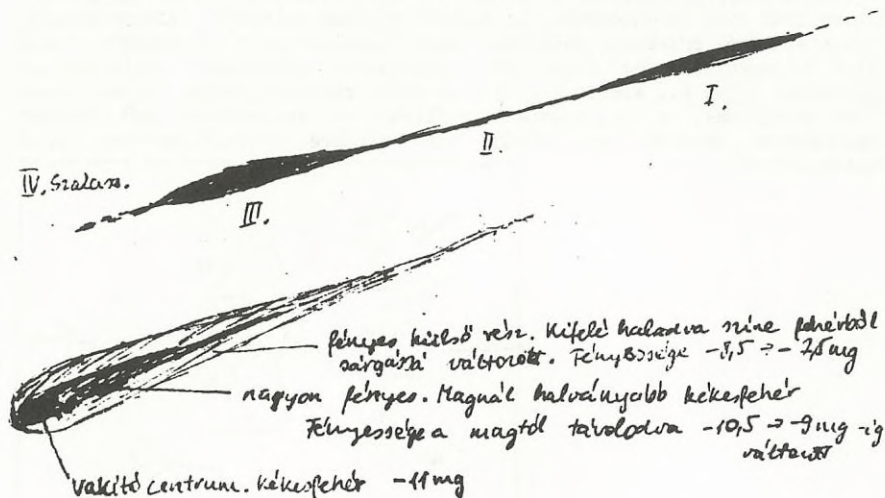 I.
II.
IV. Szakasz.
III.
fényes külső rész. Kifelé haladva színe fehérből
sárgássá változott. Fényessége -8,5 → -7,5 mg
nagyon fényes. Magnál halványabb kékesfehér
Fényessége a magtól távolodva -10,5 → -9 mg -ig
változott
Vakító centrum. kékesfehér -11 mg